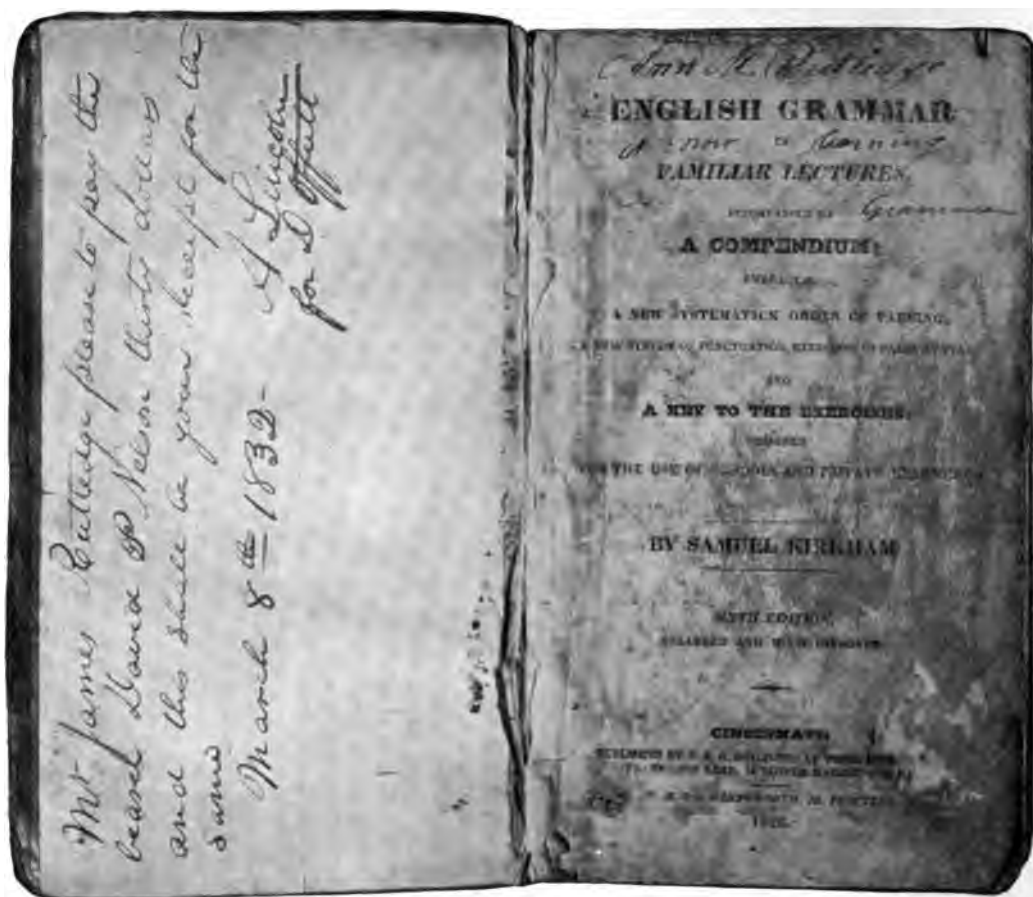 Mr James Rutledge please to pay the
bearer David P Nelson thirty dollars
and this shall be your receipt for the
same
March 8th 1832-
A Lincoln
for D Offutt
Ann M. Rutledge
ENGLISH GRAMMAR
is now learning
FAMILIAR LECTURES,
Grammar
A COMPENDIUM;
A NEW SYSTEMATICK ORDER OF PARSING,
A NEW SYSTEM OF PUNCTUATION, EXERCISES IN FALSE SYNTAX,
AND
A KEY TO THE EXERCISES;
FOR THE USE OF SCHOOLS AND PRIVATE LEARNERS.
BY SAMUEL KIRKHAM
EDITION,
ENLARGED AND MUCH IMPROVED.
CINCINNATI: